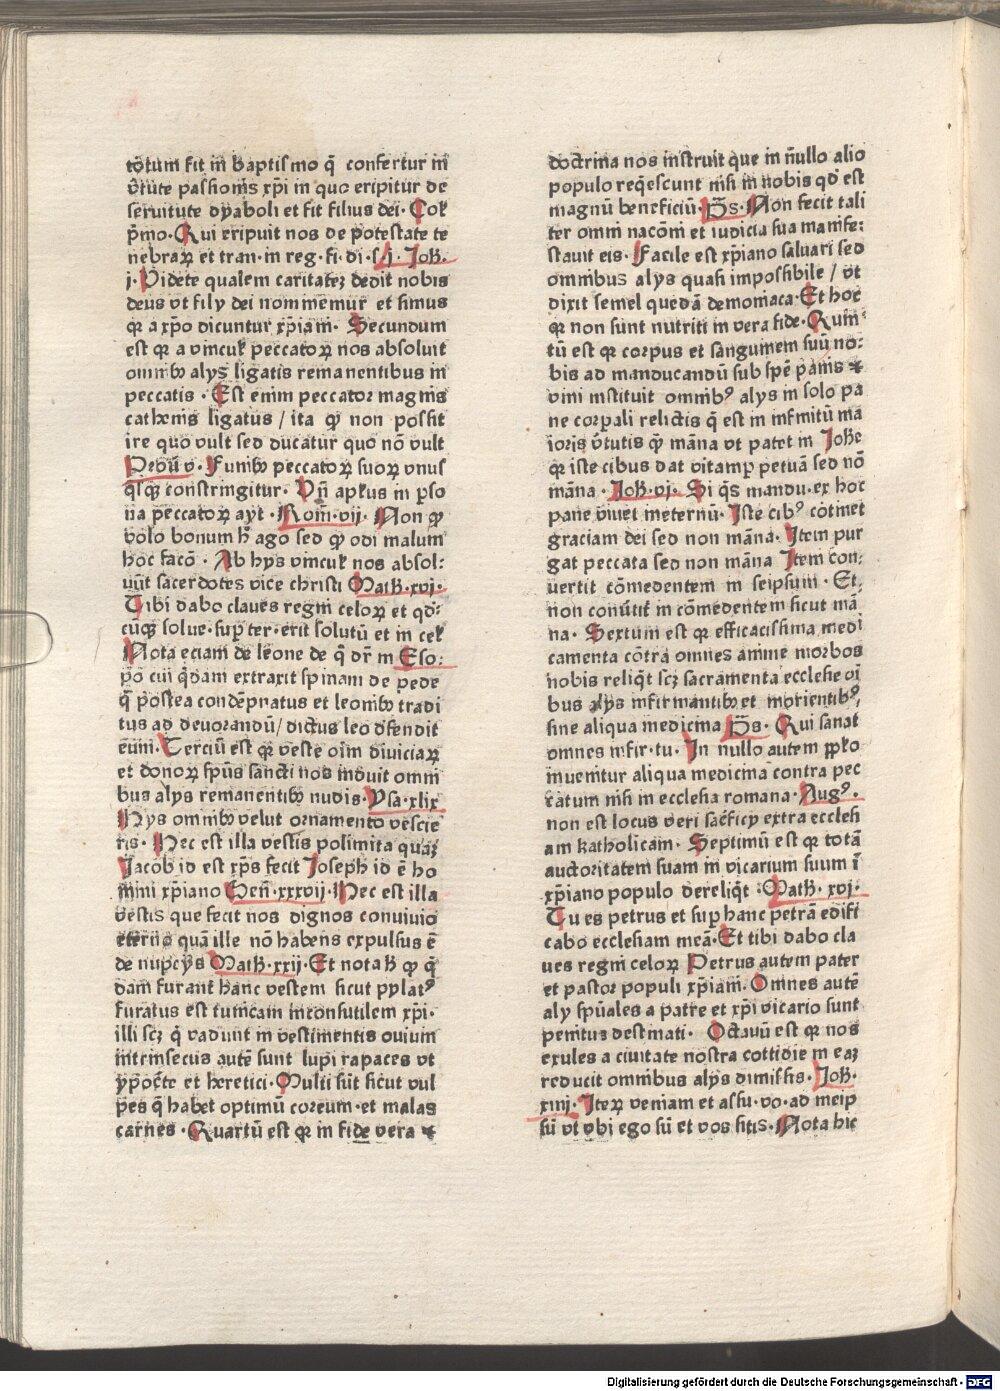 totum fit in baptismo q̄ confertur in
v̄tute passionis xp̄i in quo eripitur de
seruitute dyaboli et fit filius dei. Col̛
p̄mo. Qui eripuit nos de potestate te
nebraꝝ et tran. in reg. fi. di. s. j. Joh̄.
j. Videte qualem caritateꝫ dedit nobis
deus vt filij dei nominemur et simus
qꝛ a xp̄o dicuntur xp̄iani. Secundum
est qꝛ a vincul̛ peccatoꝝ nos absoluit
omnibꝫ alijs ligatis remanentibus in
peccatis . Est enim peccator magnis
cathenis ligatus / ita ꝙ non possit
ire quo vult sed ducatur quo nō vult
Prouū v. Funibꝫ peccatoꝝ suoꝝ vnus
qͥsqꝫ constringitur. Vn̄ aplūs in ꝑso
na peccatoꝝ ayt . Rom̄. vij. Non ꝙ
volo bonum h̄ ago sed ꝙ odi malum
hoc facō . Ab hys vincul̛ nos absol:
uūt sacerdotes vice christi Math̄. xvj.
Tibi dabo claues regni celoꝝ et qd̄:
cūqꝫ solue. suꝑ ter. erit solutū et in cel̛
Nota eciam de leone de q̄ dr̄ in Eso:
po cui qͥdam extraxit spinam de pede
q̄ postea condēpnatus et leonibꝫ tradi
tus ad deuorandū / dictus leo dfendit
eum. Terciū est qꝛ veste oim̄ diuiciaꝝ
et donoꝝ sp̄us sancti nos induit omni
bus alijs remanentibꝫ nudis. Ysa. xlix
Hys omnibꝫ velut ornamento vestie
ris. Hec est illa vestis polimita quaꝫ
Jacob id est xp̄s fecit Joseph id ē ho
mini xp̄iano Gen̄. xxxvij. Hec est illa
vestis que fecit nos dignos conuiuio
eterno quā ille nō habens expulsus ē
de nupcijs Math̄. xxij. Et nota h̄ ꝙ q̄
dam furant̄ hanc vestem sicut pylatꝰ
furatus est tunicam inconsutilem xp̄i.
illi scꝫ q̄ vadunt in vestimentis ouium
intrinsecus autē sunt lupi rapaces vt
ypoc̄te et heretici. Multi sūt sicut vul
pes q̄ habēt optimū coreum. et malas
carnes . Quartū est qꝛ in fide vera ⁊
doctrina nos instruit que in n̄ullo alio
populo req̄escunt nisi in nobis qd̄ est
magnū beneficiū. p̄s. Non fecit tali
ter omni nacōni et iudicia sua manife:
stauit eis. Facile est xp̄iano saluari sed
omnibus alijs quasi impossibile / vt
dixit semel quedā demoniaca. Et hoc
qꝛ non sunt nutriti in vera fide. Quin:
tū est qꝛ corpus et sanguinem suū no:
bis ad manducandū sub spē panis ⁊
vini instituit omnibꝰ alijs in solo pa
ne corꝑali relictis q̄ est in infinitū ma
ioris v̄tutis ꝙ māna vt patet in Johē
qꝛ iste cibus dat vitam ꝑpetuā sed nō
māna . Joh̄. vj. Si qͥs mandu. ex hoc
pane viuet ineternū. Iste cibꝰ cōtinet
graciam dei sed non māna. Item pur
gat peccata sed non māna Item con:
uertit cōmedentem in seipsum . Et
non conūtit̄ in cōmedentem sicut mā
na. Sextum est qꝛ efficacissima medi
camenta cōtra omnes anime morbos
nobis reliqͥt scꝫ sacramenta ecclesie oī
bus alijs infirmantibꝫ et morientibꝰ,
sine aliqua medicina p̄s. Qui sanat
omnes infir. tu. In nullo autem ꝓpl̛o
inuenitur aliqua medicina contra pec
catum nisi in ecclesia romana. Augꝰ.
non est locus veri sac̄ficij extra ecclesi
am katholicam. Septimū est qꝛ totā
auctoritatem suam in vicarium suum ī
xp̄iano populo dereliqͥt : Math̄. xvj.
Tu es petrus et suꝑ hanc petrā edifi
cabo ecclesiam meā. Et tibi dabo cla
ues regni celoꝝ Petrus autem pater
et pastor populi xp̄iani. Omnes autē
alij sp̄uales a patre et xp̄i vicario sunt
penitus destinati. Octauū est qꝛ nos
exules a ciuitate nostra cottidie in eaꝫ
reducit omnibus alijs dimissis. Joh̄.
xiiij. Iteꝝ veniam et assu. vo. ad meip
sū vt vbi ego sū et vos sitis. Nota hic
Digitalisierung gefördert durch die Deutsche Forschungsgemeinschaft - DFG